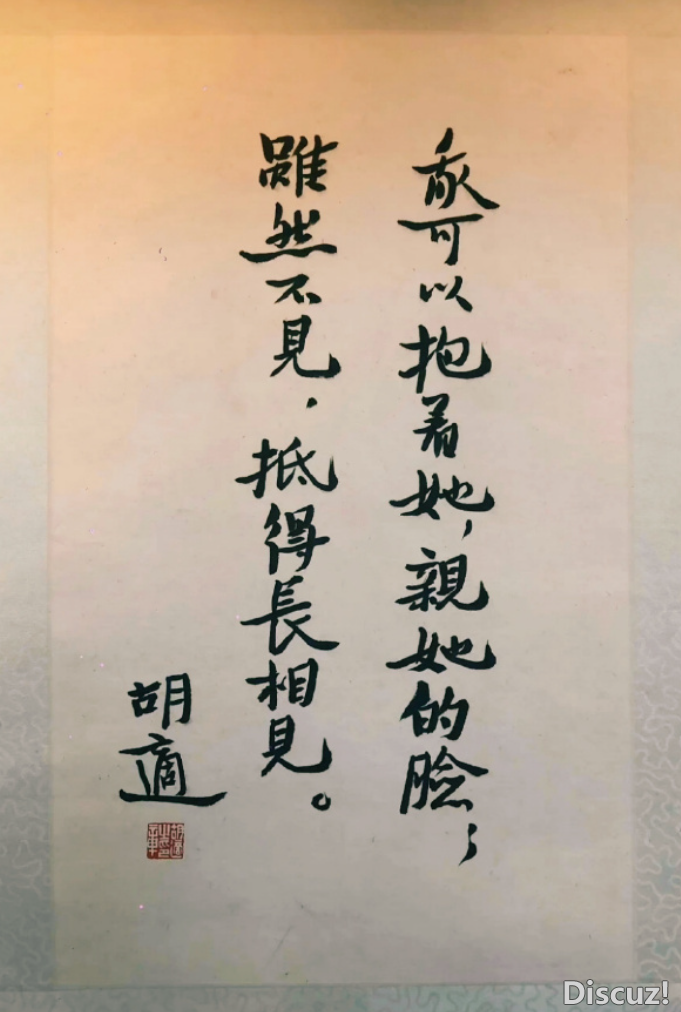 我可以抱着她，親她的臉；
雖然不見，抵得長相見。
胡適
Discuz!